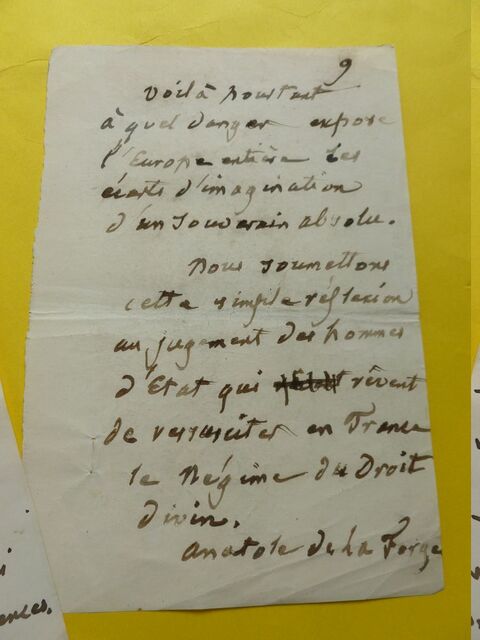 9
Voilà pourtant
à quel danger expose
l'Europe entière les
écarts d'imagination
d'un souverain absolu.
Nous soumettons
cette simple réflexion
au jugement des hommes
d'Etat qui rêvent
de ressusciter en France
le Régime du Droit
divin.
Anatole de la Forge